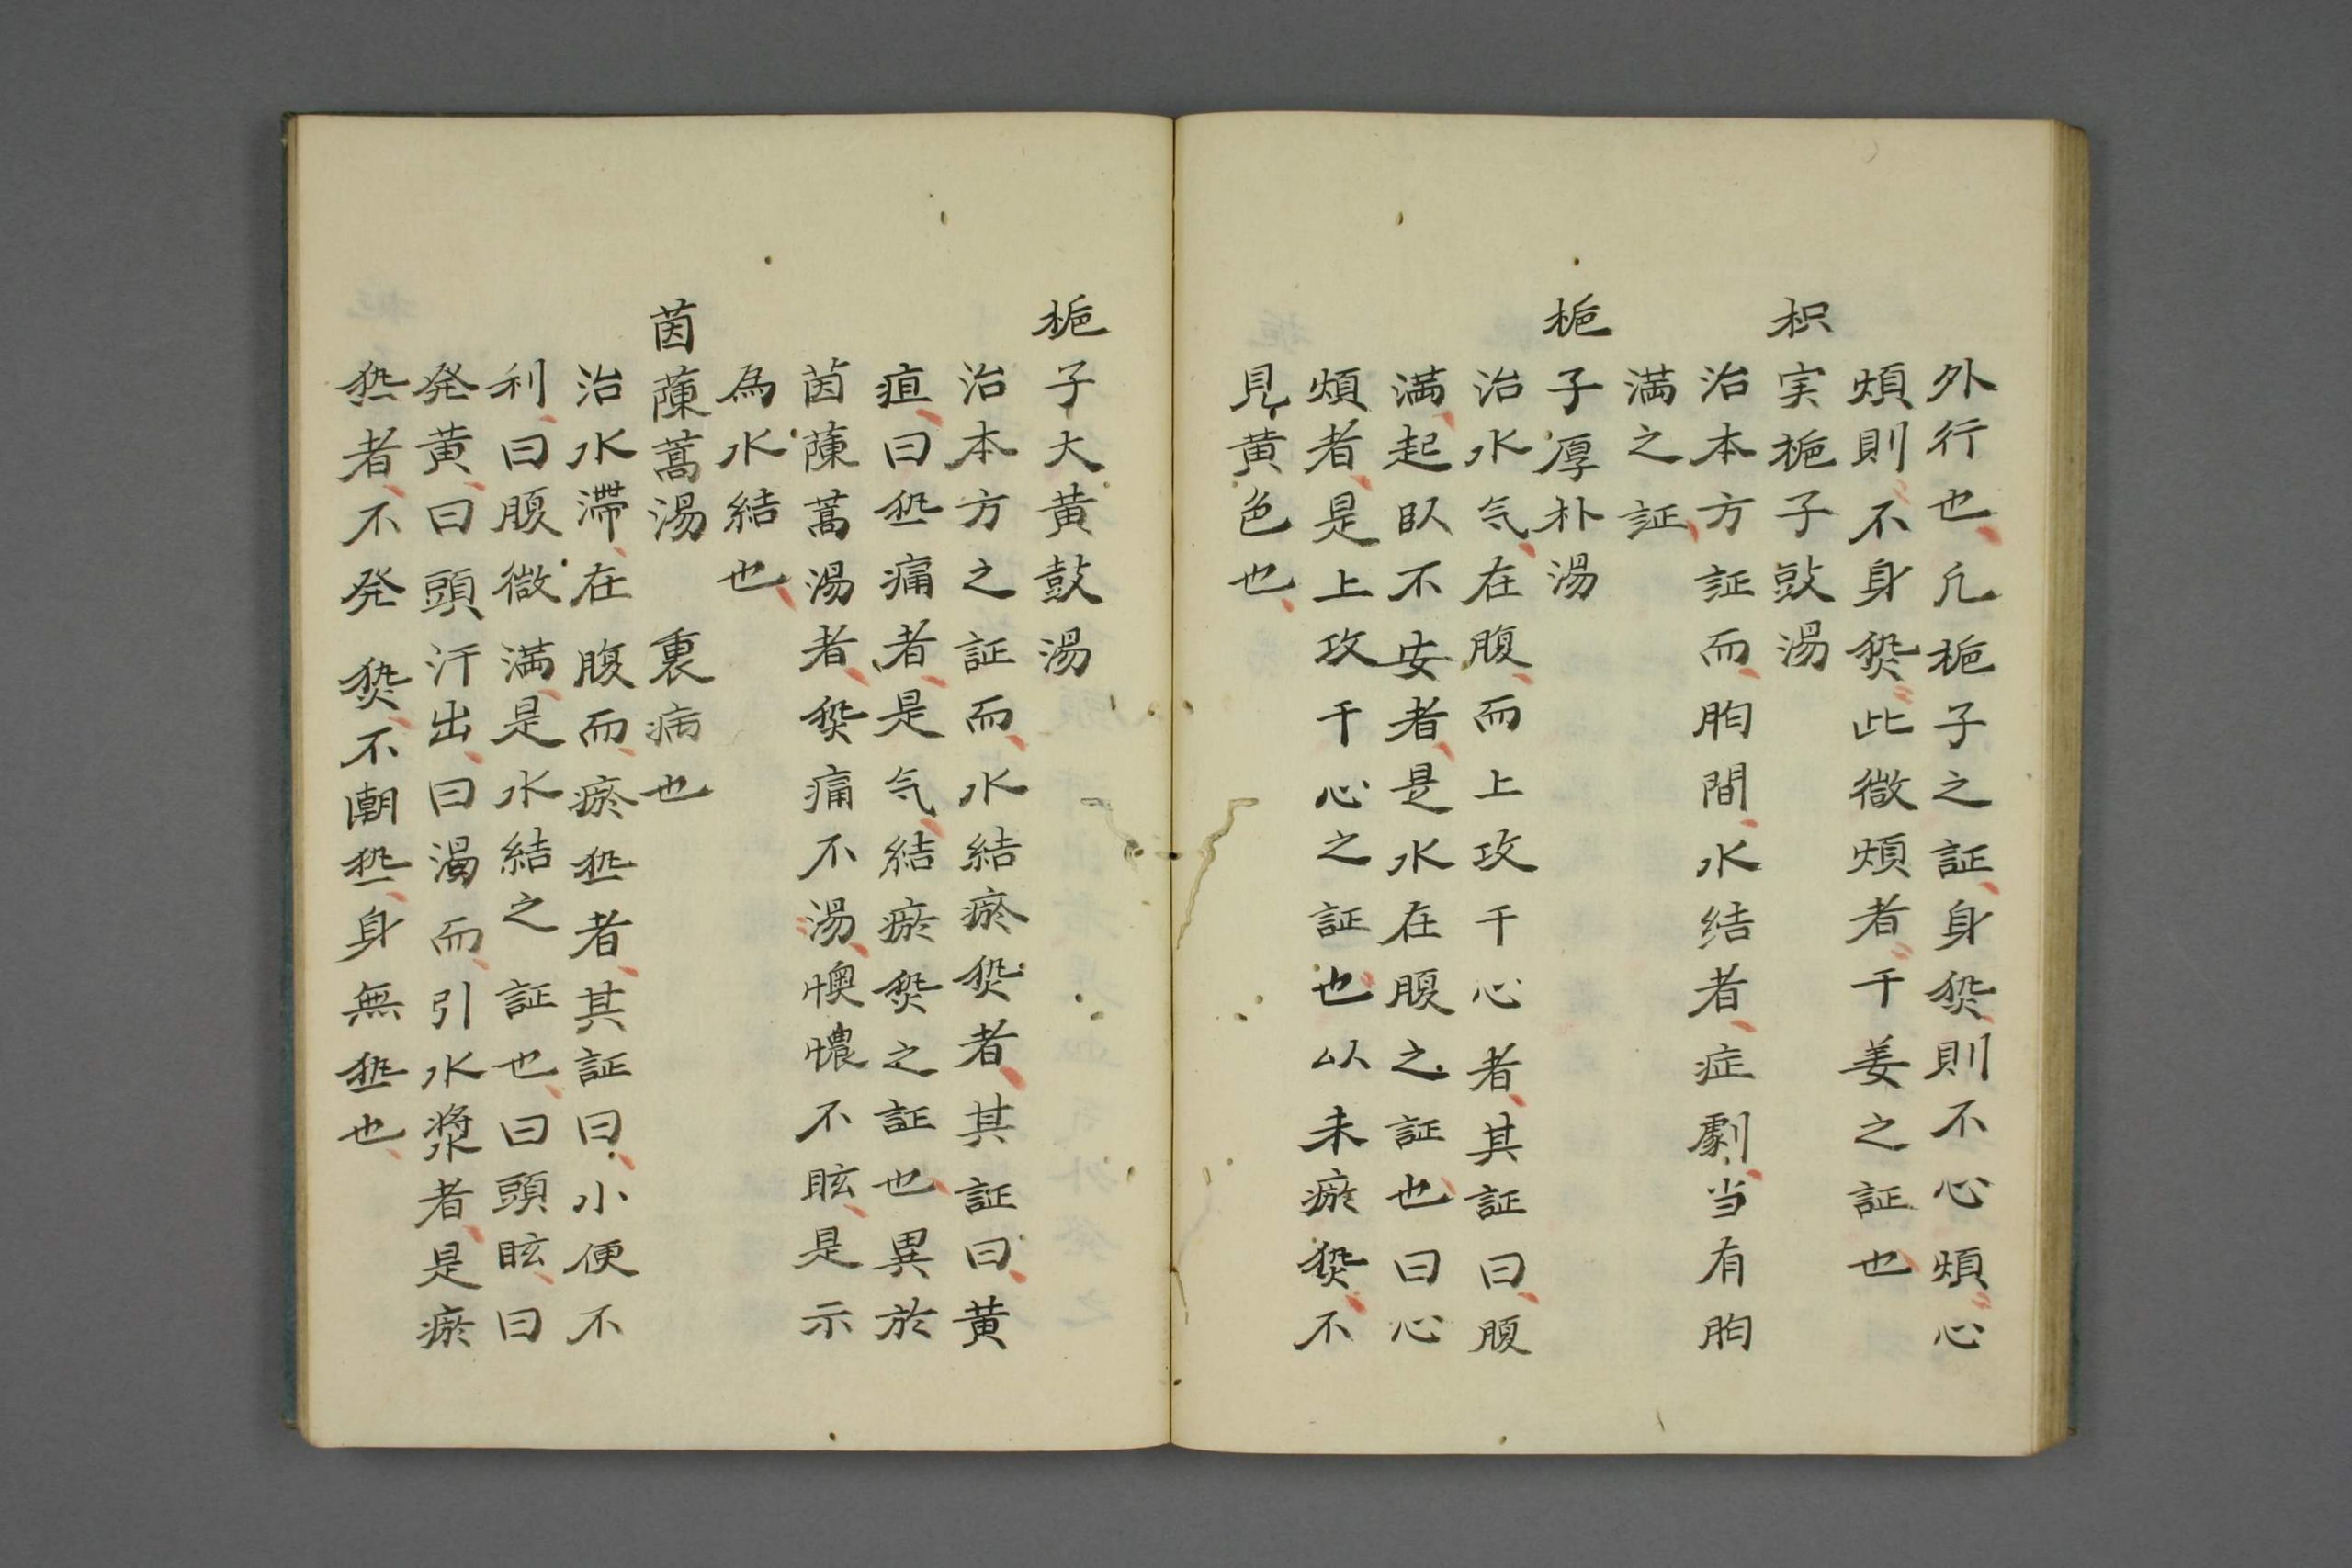 外行也凢栀子之証身𤍽則不心煩心
煩則不身𤍽此微煩者干姜之証也
枳実栀子豉湯
治本方証而胸間水结者症劇当有胸
満之証
栀子厚朴湯
治水气在腹而上攻干心者其証曰腹
満起臥不安者是水在腹之証也曰心
煩者是上攻干心之証也以未瘀𤍽不
見黄色也
栀子大黄豉湯
治本方之証而水結瘀𤍽者其証曰黄
疸曰热痛者是气結瘀𤍽之証也異於
茵蔯蒿湯者𤍽痛不湯懊憹不眩是示
為水結也
茵蔯蒿湯 裏病也
治水滞在腹而瘀热者其証曰小便不
利曰腹微満是水結之証也曰頭眩曰
発黄曰頭汗出曰渇而引水漿者是瘀
热者不発𤍽不潮热身無热也